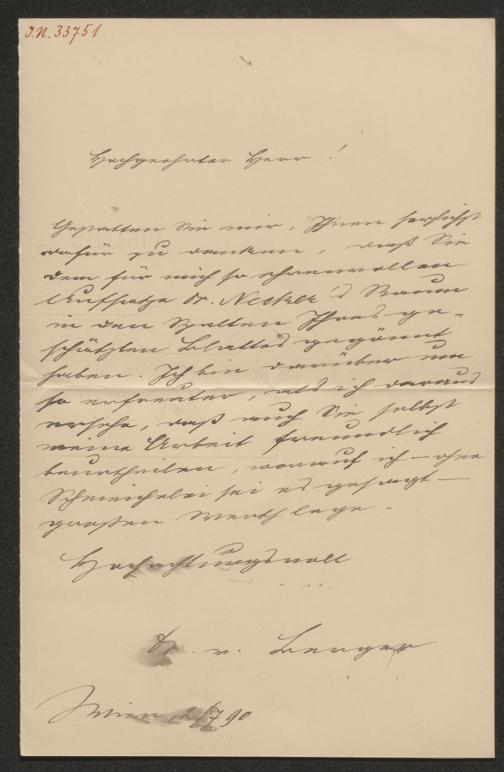 J.N. 33751
Hochgeehrter Herr!
Gestatten Sie mir, Ihnen herzlichst
dafür zu danken, daß Sie
dem für mich so ehrenvollen
Aufsatze Dr. Necker's Raum
in den Spalten Ihres ge-
schätzten Blattes gegönnt
haben. Ich bin darüber um
so erfreuter, als ich daraus
ersehe, daß auch Sie selbst
meine Arbeit freundlich
beurtheilen, worauf ich – ohne
Schmeichelei sei es gesagt –
großen Werth lege.
Hochachtungsvoll
Dr. v. Berger
Wien /7 90